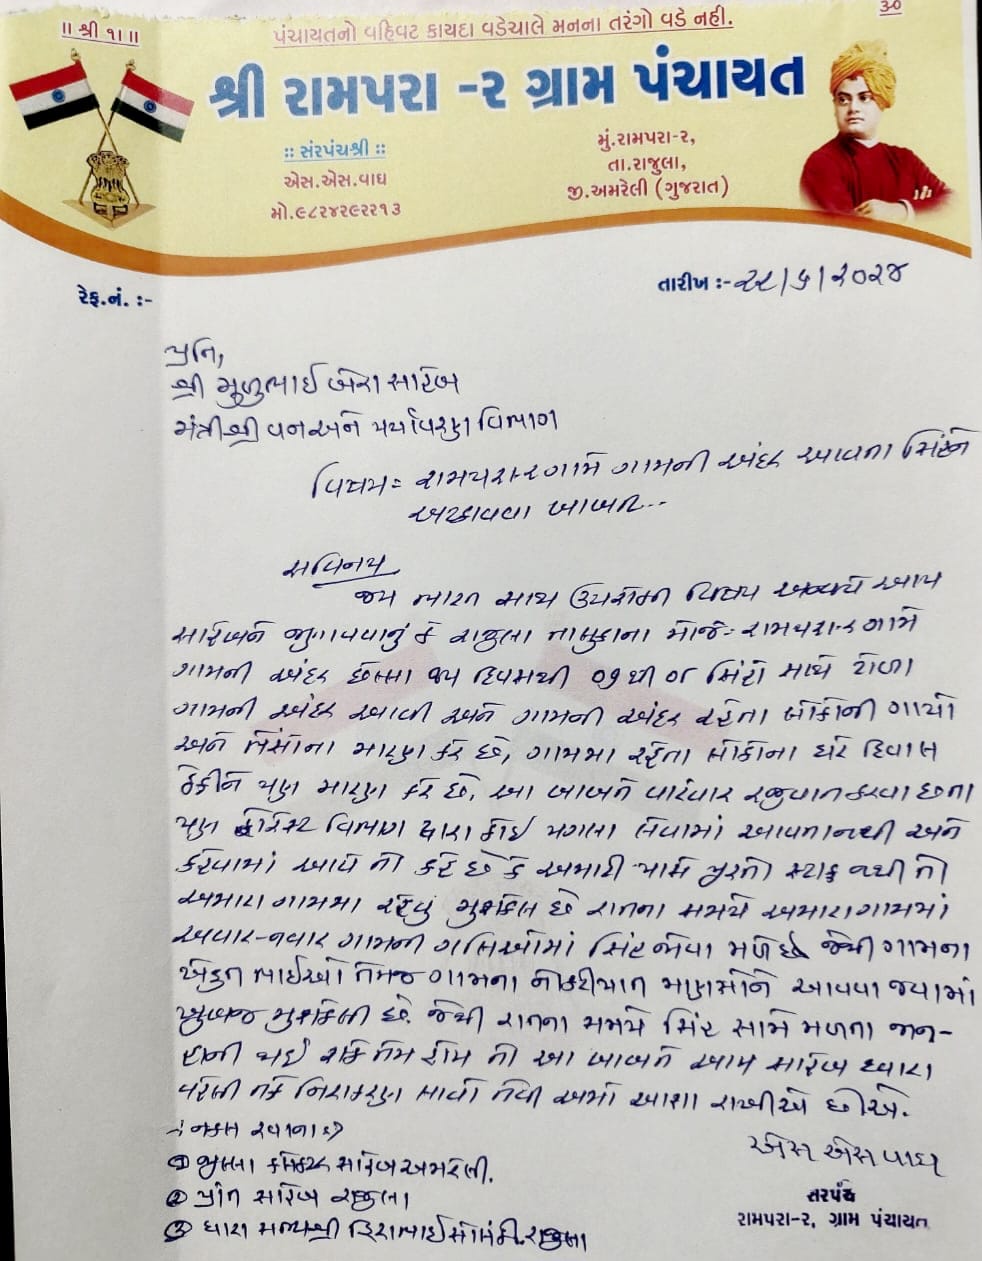 ૩૦
॥ શ્રી ૧ા ॥
પંચાયતનો વહિવટ કાયદા વડેચાલે મનના તરંગો વડે નહી.
શ્રી રામપરા -૨ ગ્રામ પંચાયત
:: સંરપંચશ્રી ::
એસ.એસ.વાઘ
મો.૯૮૨૪૨૯૨૨૧૩
મું.રામપરા-૨,
તા.રાજુલા,
જી.અમરેલી (ગુજરાત)
રેફ.નં. :-
તારીખ :- ૨૨/૬/૨૦૨૪
પ્રતિ,
શ્રી મુળુભાઈ બેરા સાહેબ
મંત્રીશ્રી વન અને પર્યાવરણ વિભાગ
વિષય:- રામપરા-૨ ગામે ગામની અંદર આવતા સિંહને
અટકાવવા બાબત...
સવિનય
જય ભારત સાથ ઉપરોક્ત વિષય અન્વયે આપ
સાહેબને જણાવવાનું કે રાજુલા તાલુકાના મોજે:- રામપરા-૨ ગામે
ગામની અંદર છેલ્લા ૪૫ દિવસથી ૦૭ થી ૦૮ સિંહો માથે ટોળા
ગામની અંદર આવી અને ગામની અંદર રહેતા લોકોની ગાયો
અને ભેંસોના મારણ કરે છે, ગામમા રહેતા લોકોના ઘરે દિવાલ
ઠેકીને પણ મારણ કરે છે. આ બાબતે વારંવાર રજુવાત કરવા છતા
પણ ફોરેસ્ટ વિભાગ દ્વારા કોઇ પગલા લેવામાં આવતા નથી અને
કહેવામાં આવે તો કહે છે કે અમારી પાસે પુરતો સ્ટાફ નથી તો
અમારા ગામમા રહેવું મુશ્કેલ છે રાતના સમયે અમારા ગામમાં
અવાર-નવાર ગામની ગલિઓમાં સિંહ જોવા મળે છે જેથી ગામના
ખેડુત ભાઈઓ તેમજ ગામના નોકરીયાત માણસોને આવવા જવામાં
ખુબજ મુશ્કેલી છે. જેથી રાતના સમયે સિંહ સામે મળતા જાન-
હાની થઈ શકે તેમ હોય તો આ બાબતે આપ સાહેબ દ્વારા
વહેલી તકે નિરાકરણ લાવો તેવી અમો આશા રાખીએ છીએ.
નકલ રવાના :-
① જીલ્લા કલેક્ટર સાહેબ અમરેલી.
② પ્રાંત સાહેબ રાજુલા
③ ધારા સભ્ય શ્રી હિરાભાઈ સોલંકી. રાજુલા
એસ એસ વાઘ
સરપંચ
રામપરા-૨, ગ્રામ પંચાયત